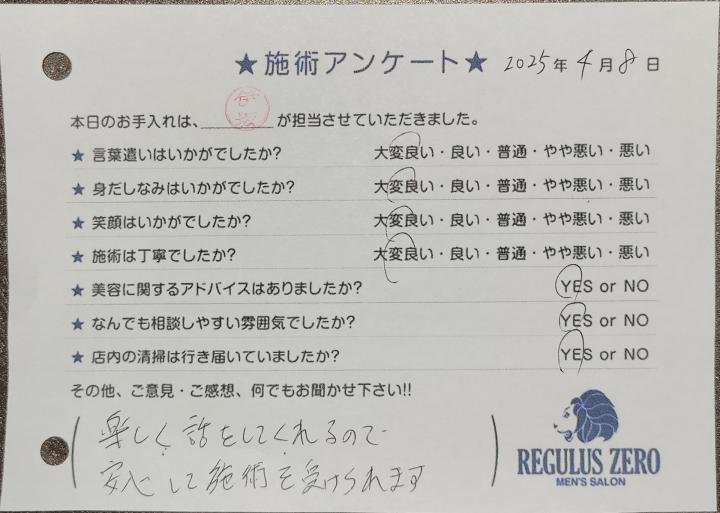 ★施術アンケート★ 2025年4月8日
本日のお手入れは、が担当させていただきました。
★ 言葉遣いはいかがでしたか? 大変良い・良い・普通・やや悪い・悪い
★ 身だしなみはいかがでしたか? 大変良い・良い・普通・やや悪い・悪い
★ 笑顔はいかがでしたか? 大変良い・良い・普通・やや悪い・悪い
★ 施術は丁寧でしたか? 大変良い・良い・普通・やや悪い・悪い
★ 美容に関するアドバイスはありましたか? YES or NO
★ なんでも相談しやすい雰囲気でしたか? YES or NO
★ 店内の清掃は行き届いていましたか? YES or NO
その他、ご意見・ご感想、何でもお聞かせ下さい!!
楽しく話をしてくれるので
安心して施術を受けられます
REGULUS ZERO
MEN'S SALON